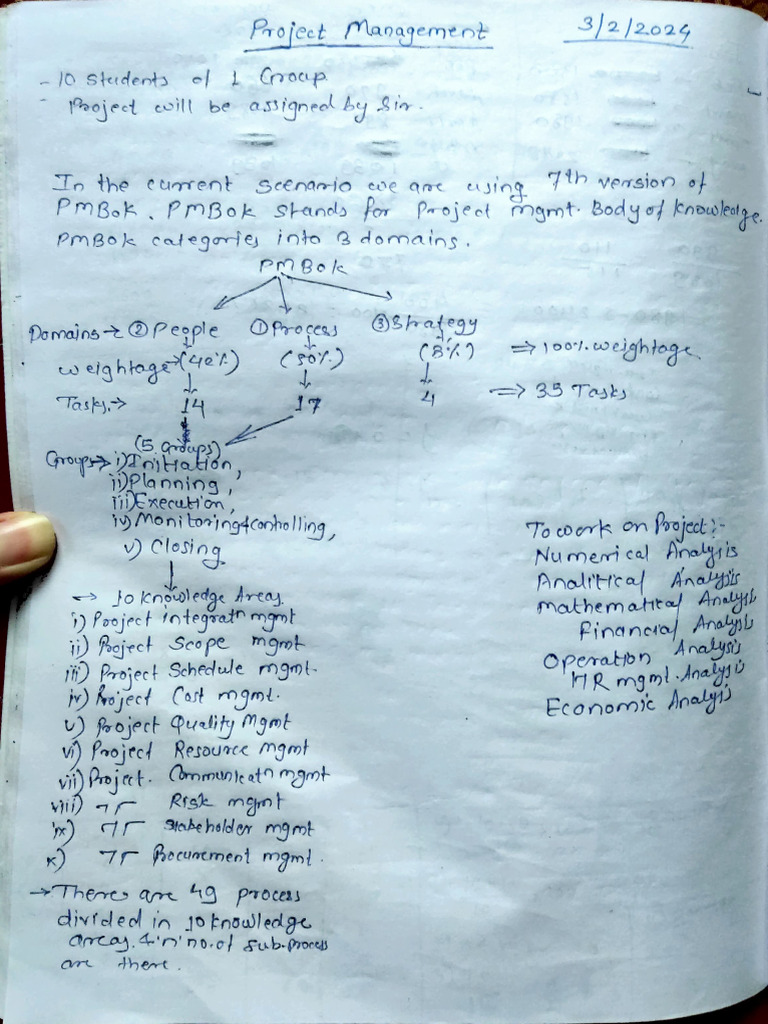 Project Management 3/2/2024
- 10 students of 1 Group.
- Project will be assigned by Sir.
In the current scenario we are using 7th version of
PMBok. PMBok stands for Project mgmt. Body of knowledge.
PMBok categories into 3 domains.
PMBok
Domains → ② People ① Process ③ Strategy
weightage → (42%) (50%) (8%) ⇒ 100% weightage
Tasks. → 14 17 4 ⇒ 35 Tasks
(5 groups)
Groups → i) Initiation,
ii) Planning,
iii) Execution,
iv) Monitoring & controlling,
v) Closing
→ 10 knowledge Areas.
i) Project integratn mgmt
ii) Project Scope mgmt
iii) Project Schedule mgmt.
iv) Project Cost mgmt.
v) Project Quality Mgmt
vi) Project Resource mgmt
vii) Project. Communicatn mgmt
viii) ㄱ┌ Risk mgmt
ix) ㄱ┌ stakeholder mgmt
x) ㄱ┌ Procurement mgmt.
→ There are 49 process
divided in 10 knowledge
areas. & 'n' no. of sub-process
are there.
To work on Project:-
Numerical Analysis
Analitical Analysis
Mathematical Analysis
Financial Analysis
Operation Analysis
HR mgmt. Analysis
Economic Analysis